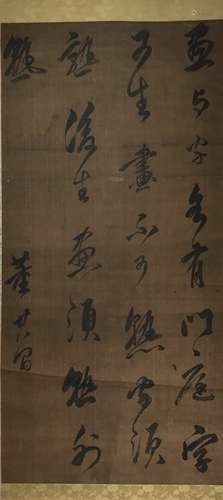 画与字各有門庭字
可生畫不可熟字須
熟後生画須熟外
熟
董其昌